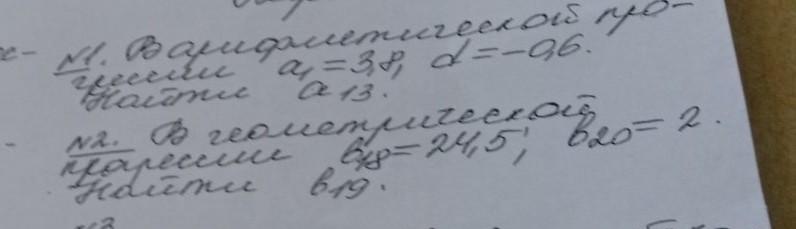 №1. В арифметической про-
грессии a₁ = 3,8, d = -0,6.
Найти a₁₃.
№2. В геометрической
прогрессии b₁₈ = 24,5; b₂₀ = 2.
Найти b₁₉.